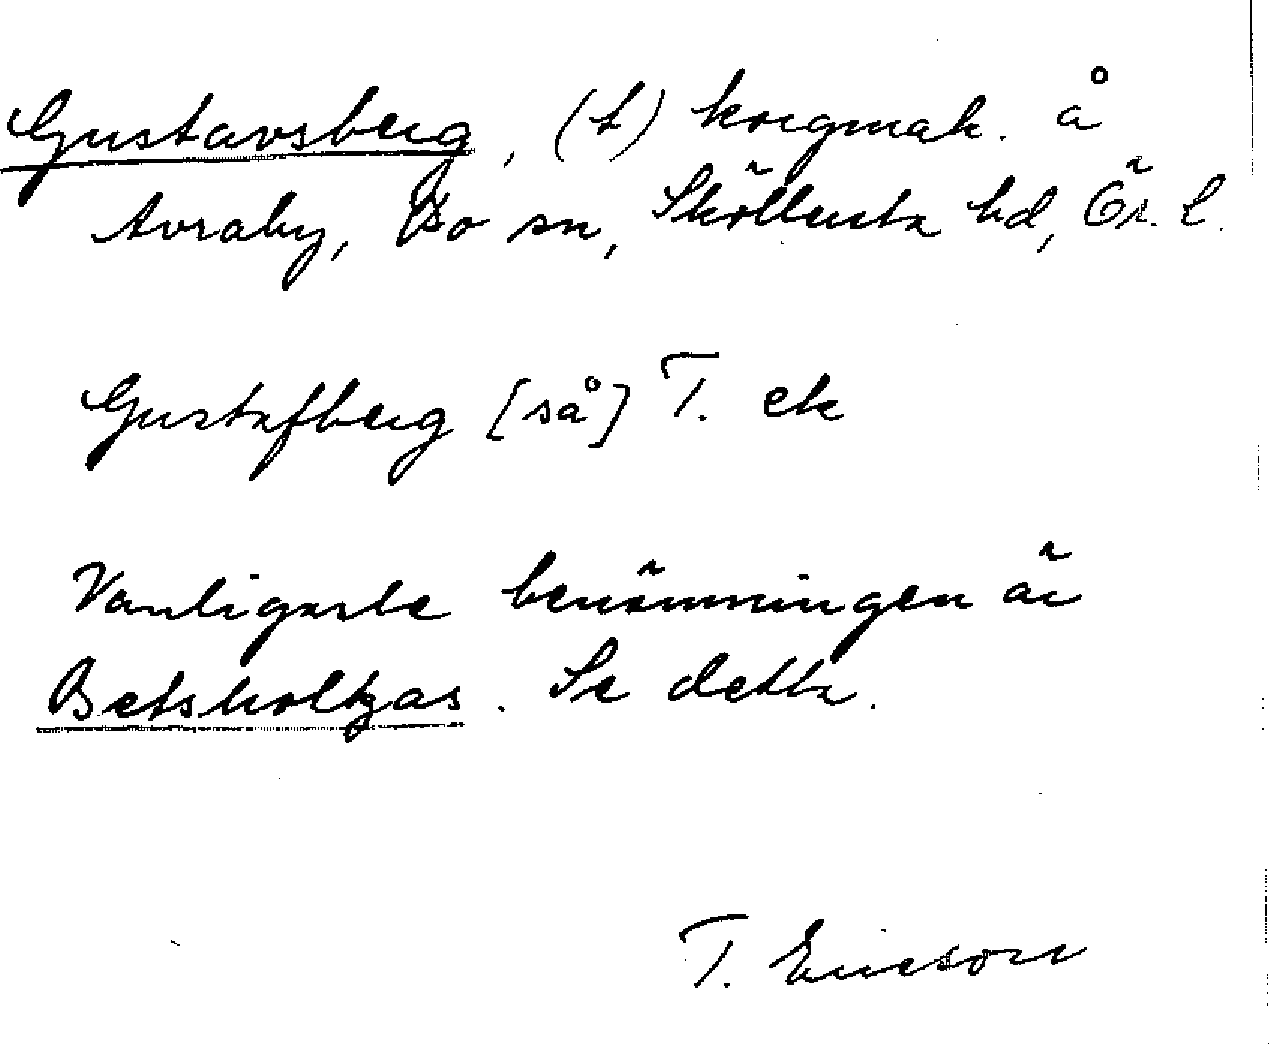 Gustavsberg, (t) korgmak. å
Avraby, Bo sn, Sköllersta hd, Ör. l.
Gustafberg [så] T. ek
Vanligaste benämningen är
Betsholtzas. Se detta.
T. Ericson